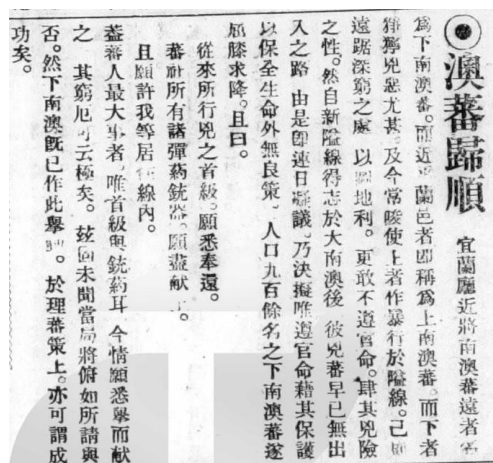 ◉澳蕃歸順 宜蘭廳近將南澳蕃遠者名
爲下南澳蕃。而近乎蘭邑者即稱爲上南澳蕃。而下者
獰兇惡尤甚。及今常唆使上者作暴行於隘線。己
遠踞深窮之處 以地利。更敢不遵官命。肆其兇險
之性。然自新隘線得志於大南澳後 彼兇蕃早已無出
入之路 由是即連日議。乃決擬唯遵官命藉其保護
以保全生命外無良策。人口九百餘名之下南澳蕃遂
屈膝求降。且曰。
從來所行兇之首級。願悉奉還。
蕃社所有諸彈葯銃器。願盡獻。
且願許我等居線內。
蓋蕃人最大事者。唯首級與銃葯耳 今情願悉舉而獻
之 其窮厄可云極矣。玆尚未聞當局將俯如所請與
否。然下南澳既已作此舉。於理蕃策上。亦可謂成
功矣。